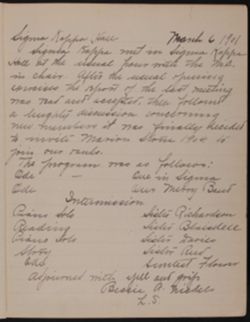 Sigma Kappa Hall March 6 1901
Sigma Kappa met in Sigma Kappa
Hall at the usual hour with the
in chair. After the usual opening
exercises the report of the last meeting
was read and accepted, then followed
a lengthy discussion concerning
new members it was finally decided
to invite Marion 190 to
join our ranks.
The program was as follows:
Ode - One in Sigma
Ode Our Band
Intermission
Piano Solo Sister Richardson
Reading Sister Blaisdell
Piano Solo Sister Davies
Story Sister
Ode Sweetest Flower
Adjourned with spell and grip
A.